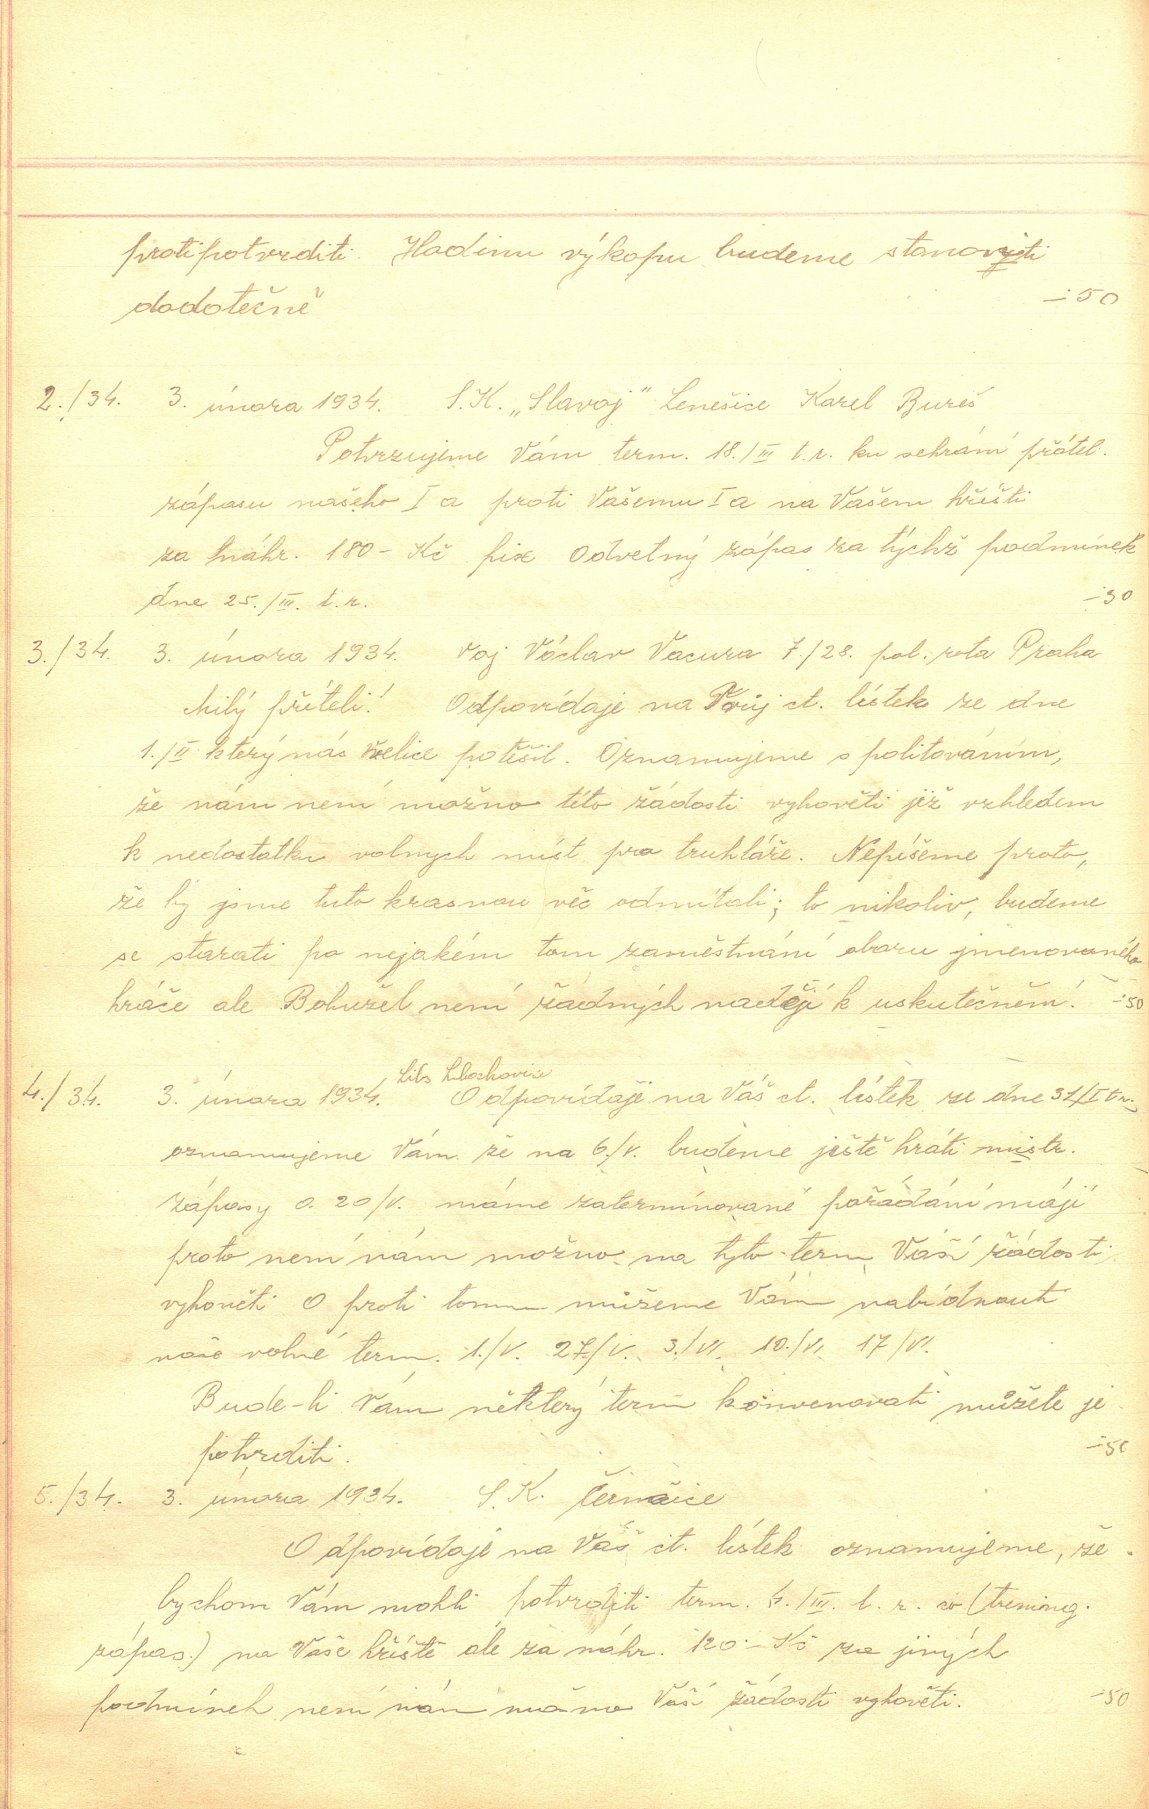 protipotvrditi. Hodinu výkopu budeme stanoviti
dodotečně -50
2./34. 3. února 1934. S.K. „Slavoj" Lenešice Karel Bureš
Potvrzujeme Vám term. 18./III t.r. ku sehrání přátel.
zápasu našeho I a proti Vašemu I a na Vašem hřišti
za náhr. 180- Kč fix Odvetný zápas za týchž podmínek
dne 25./III. t.r. -30
3./34. 3. února 1934. Voj Václav Vacura 7./28. pol. rota Praha
Milý příteli! Odpovídaje na Tvůj ct. lístek ze dne
1./II který nás velice potěšil. Oznamujeme s politováním,
že nám není možno této žádosti vyhověti již vzhledem
k nedostatku volnych míst pro truhláře. Nepíšeme proto,
že by jsme tuto krasnou věc odmítali; to nikoliv, budeme
se starati po nejakém tom zaměstnání oboru jmenovaného
hráče ale Bohužel není žádných nadějí k uskutečnění. -50
4./34. 3. února 1934. Odpovídaje na Váš ct. lístek ze dne 31/I t.r.
oznamujeme Vám že na 6./V. budeme ještě hráti mistr.
zápasy a 20/V. máme zatermínované pořádání májí
proto není nám možno na tyto term Váší žádosti
vyhověti O proti tomu můžeme Vám nabídnouti
naše volné term. 1./V. 27./V. 3./VI. 10./VI. 17/VI.
Bude-li Vám některý term konvenovati můžete jej
potvrditi. -50
5./34. 3. února 1934. S.K. Černčice
Odpovídaje na Váš ct. lístek oznamujeme, že
bychom Vám mohli potvrditi term. 4./III. t. r. (trening.
zápas.) na Vaše hřiště ale za náhr. 120- Kč za jiných
podmínek není nám možno Vaší žádosti vyhověti. -50